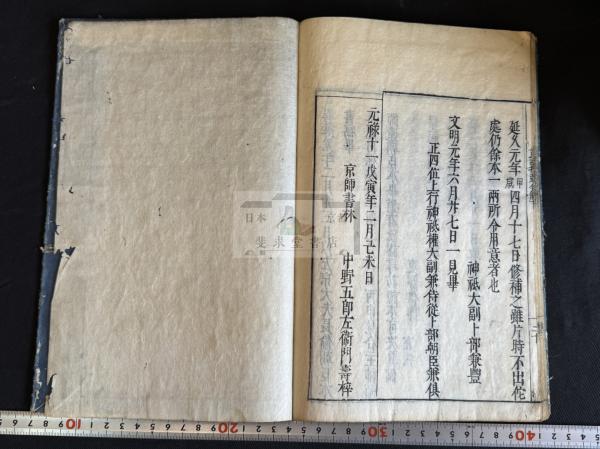 延文元年甲戌四月十七日修補之雖片時不出佗
處仍餘本一兩所令用意者也
神祇大副上部兼豐
文明元年六月廿七日一見畢
正四位上行神祇權大副兼侍從上部朝臣兼俱
元祿十一戊寅年二月乙未日
京師書林
中野五郎左衞門壽梓
日本
京都
斐求堂書店
10
20
30
40